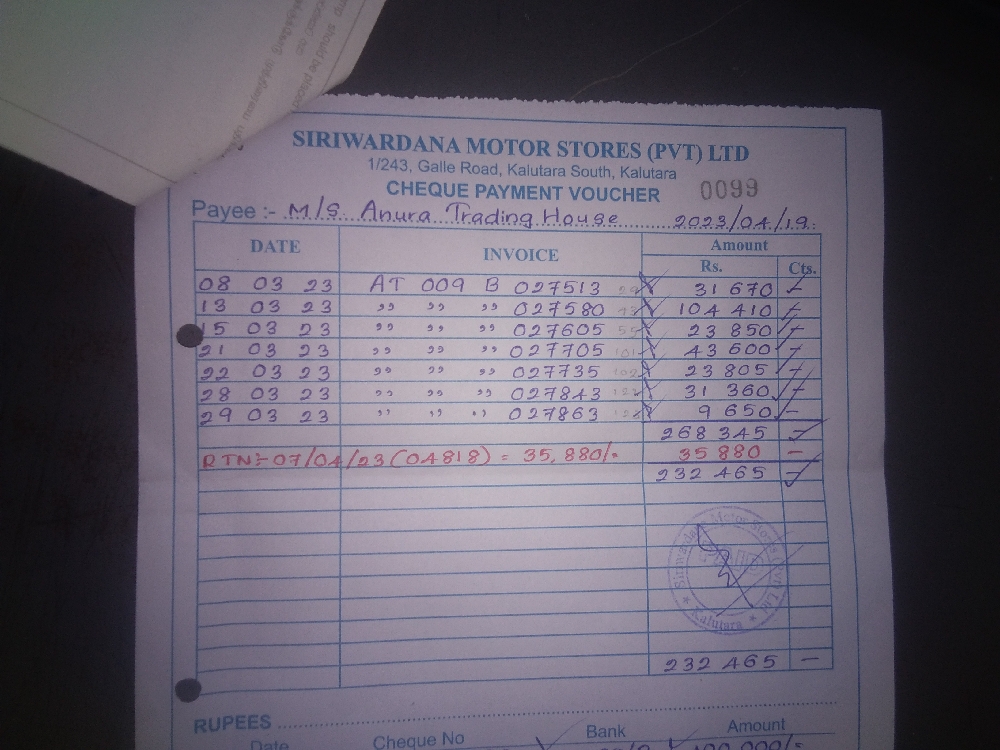 SIRIWARDANA MOTOR STORES (PVT) LTD
1/243, Galle Road, Kalutara South, Kalutara
CHEQUE PAYMENT VOUCHER 0099
Payee :- M/S. Anura Trading House 2023/04/19.
DATE INVOICE Amount
Rs. Cts.
08 03 23 AT 009 B 027513 31 670 -
13 03 23 " " " 027580 104 410 -
15 03 23 " " " 027605 23 850 -
21 03 23 " " " 027705 43 600 -
22 03 23 " " " 027735 23 805 -
28 03 23 " " " 027843 31 360 -
29 03 23 " " " 027863 9 650 -
268 345 -
RTN:- 07/04/23 (04818) = 35,880/- 35 880 -
232 465 -
Siriwardana Motor Stores (Pvt) Ltd
PAID
★ Kalutara ★
232 465 -
RUPEES
Date Cheque No Bank Amount